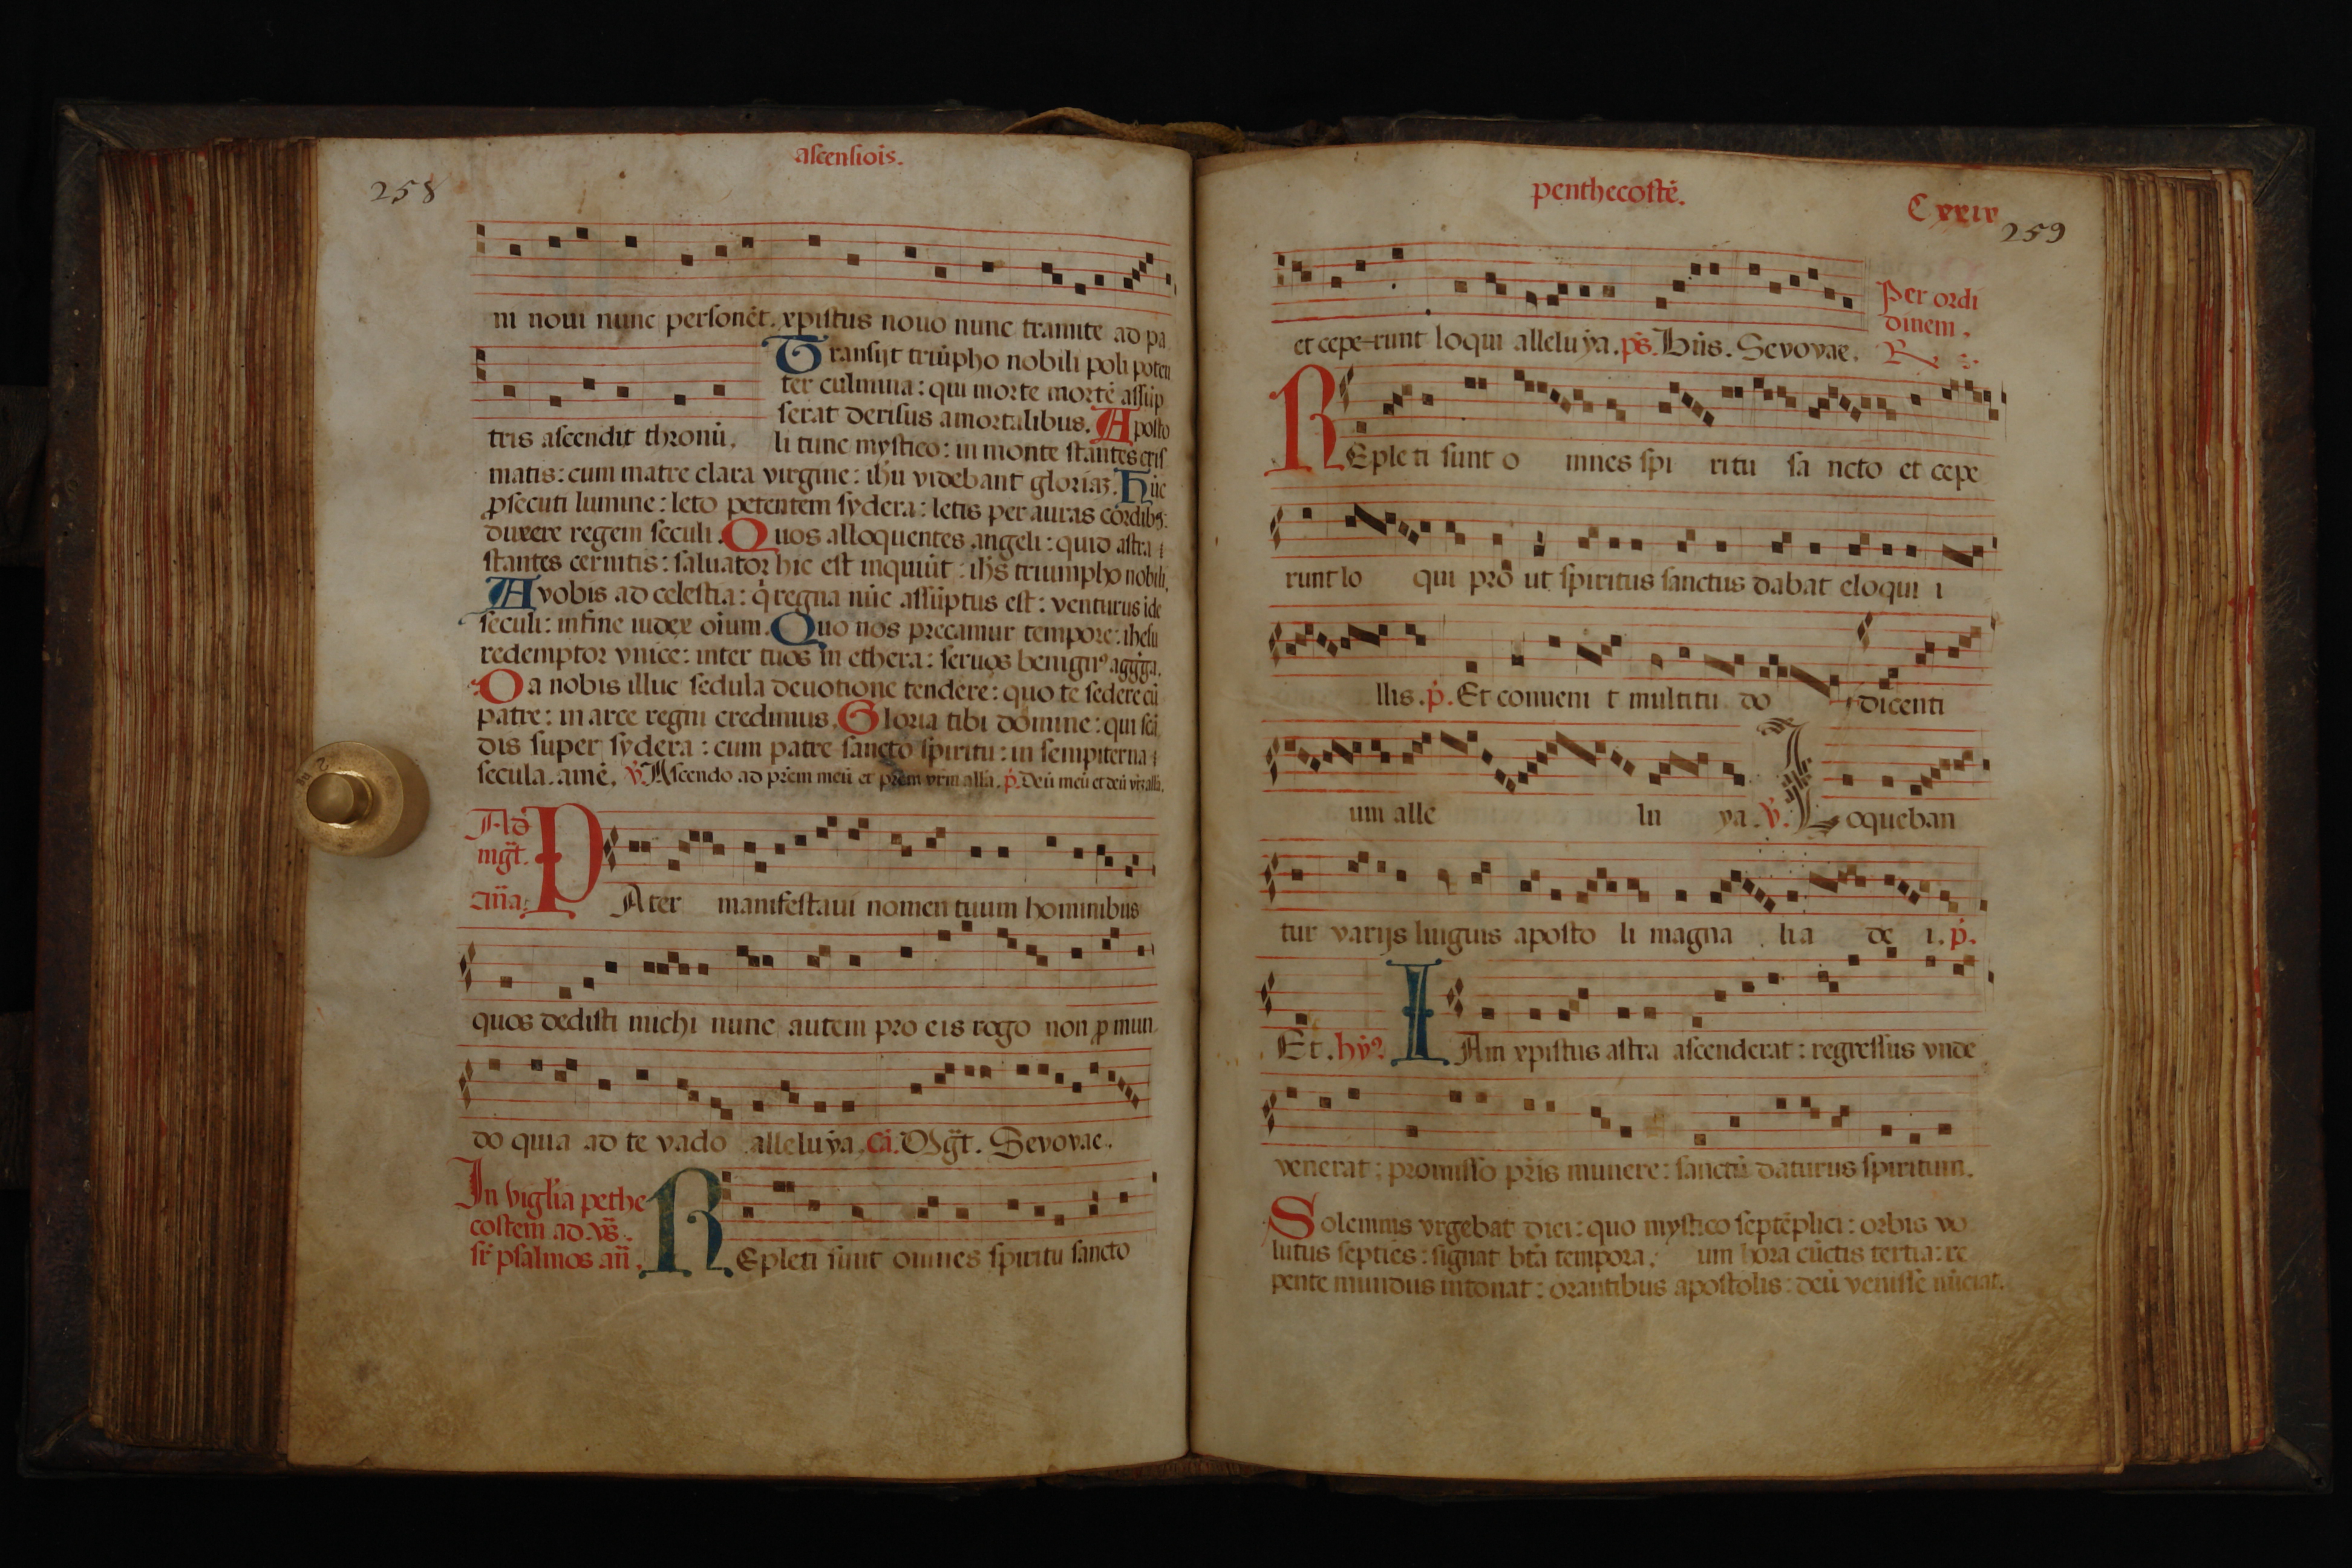 ascensiois.
258
ni noui nunc personēt. xpistus nouo nunc tramite ad pa
Transijt triūpho nobili poli poten
ter culmina: qui morte mortē assūp
serat derisus a mortalibus. Aposto
tris ascendit thronū.
li tunc mystico: in monte stantes cris
matis: cum matre clara virgine: ihū videbant gloriaʒ. Hūc
ꝓsecuti lumine: leto petentem sydera: letis per auras cordibꝫ:
duxere regem seculi. Quos alloquentes angeli: quid astra
stantes cernitis: saluator hic est inquiūt: ihs triumpho nobili.
A vobis ad celestia: q̇ regna nūc assūptus est: venturus ide
seculi: in fine iudex oīum. Quo nos precamur tempore: ihesu
redemptor vnice: inter tuos in ethera: seruos benignꝰ aggrega.
Da nobis illuc sedula deuotione tendere: quo te sedere cū
patre: in arce regni credimus. Gloria tibi domine: qui scā
dis super sydera: cum patre sancto spiritu: in sempiterna
secula. amē. v̇. Ascendo ad prēm meū et prēm vrm̄ alla. p̄. Deū meū et deū vr̄ʒ alla.
Ad
mgt̄.
an̄a:
PAter manifestaui nomen tuum hominibus
quos dedisti michi nunc autem pro eis rogo non ꝓ mun
do quia ad te vado alleluya. Cā. Mgt̄. Sevovae.
In viglīa pēthe
costem ad vs̄.
sr̄ psalmos an̄.
REpleti sunt omnes spiritu sancto
penthecostē.
Cxxiv
259
et cepe-runt loqui alleluya. ps̄. Bn̄s. Sevovae.
Per ordi
dinem.
R
REple ti sunt o mnes spi ritu sa ncto et cepe
runt lo qui pro ut spiritus sanctus dabat eloqui i
llis. p̄. Et conueni t multitu do dicenti
um alle lu ya. v̄. Loqueban
tur varijs linguis aposto li magna li a de i. p̄.
Et. hẏꝰ IAm xpistus astra ascenderat: regressus vnde
venerat: promisso pr̄is munere: sanctū daturus spiritum.
Solemnis vrgebat diei: quo mystico septēplici: orbis vo
lutus septies: signat btā tempora. um hora cūctis tertia: re
pente mundus intonat: orantibus apostolis: deū venisse nūciat.